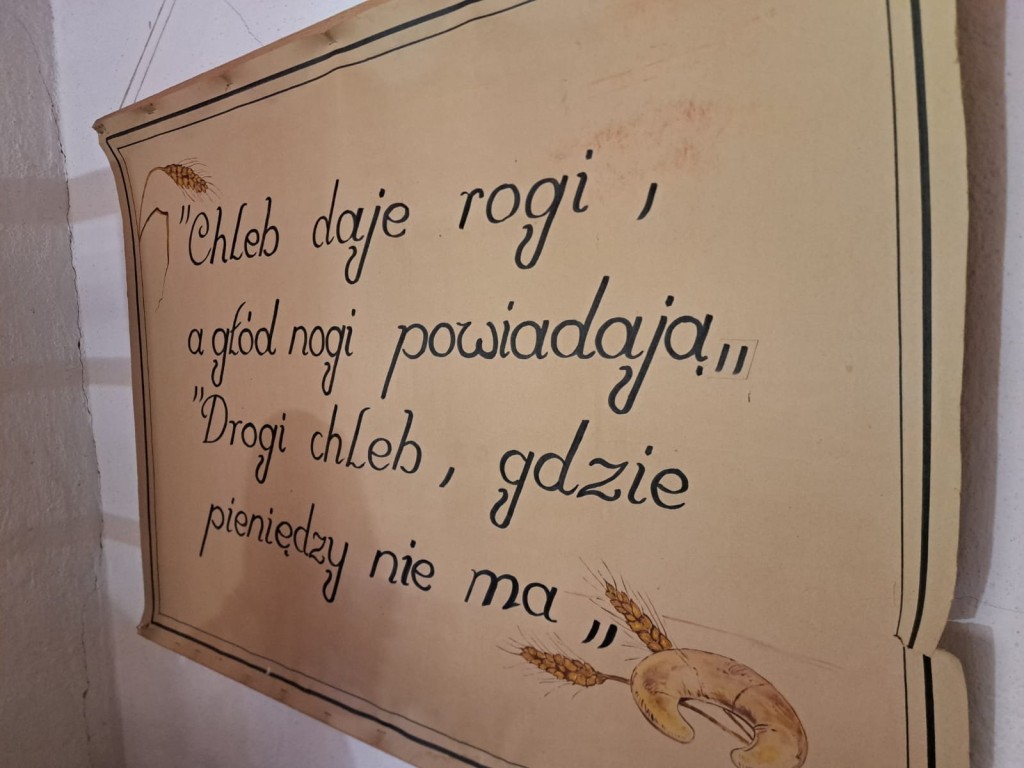 "Chleb daje rogi,
a głód nogi powiadają"
"Drogi chleb, gdzie
pieniędzy nie ma"